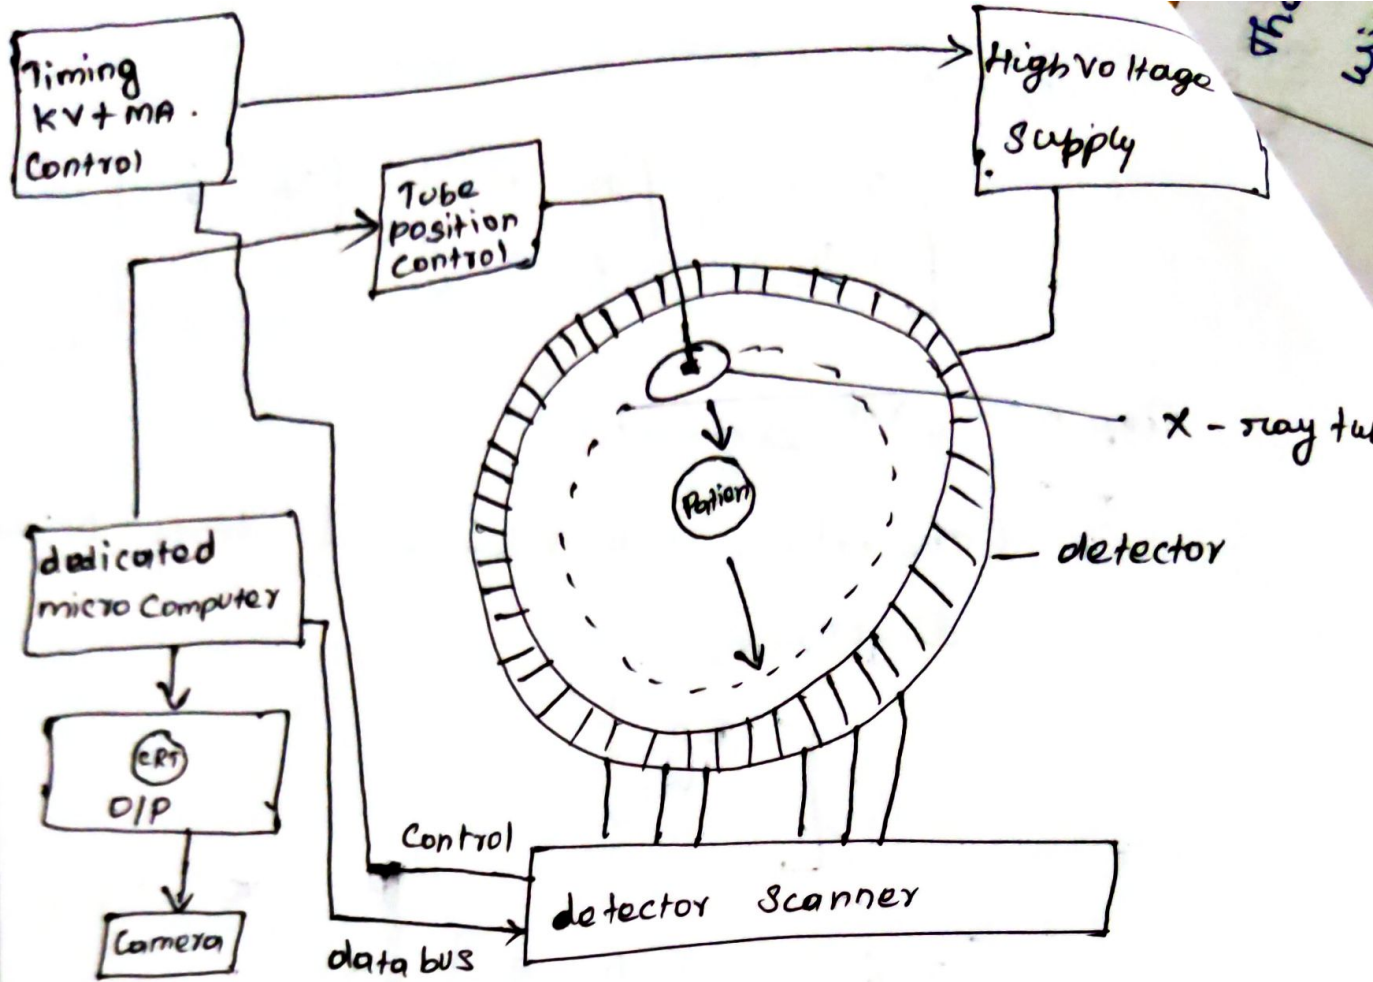 Timing
KV + MA.
Control
High Voltage
Supply
Tube
position
Control
X - ray
detector
dedicated
micro Computer
CRT
O/P
Camera
Control
data bus
detector Scanner